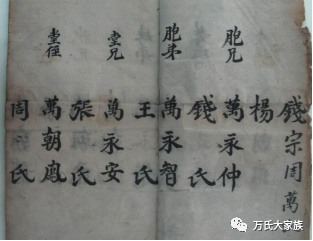 錢宗周萬
楊
胞兄 萬永仲
錢氏
胞弟 萬永智
王氏
堂兄 萬永安
張氏
堂侄 萬朝鳳
周氏
万氏大家族